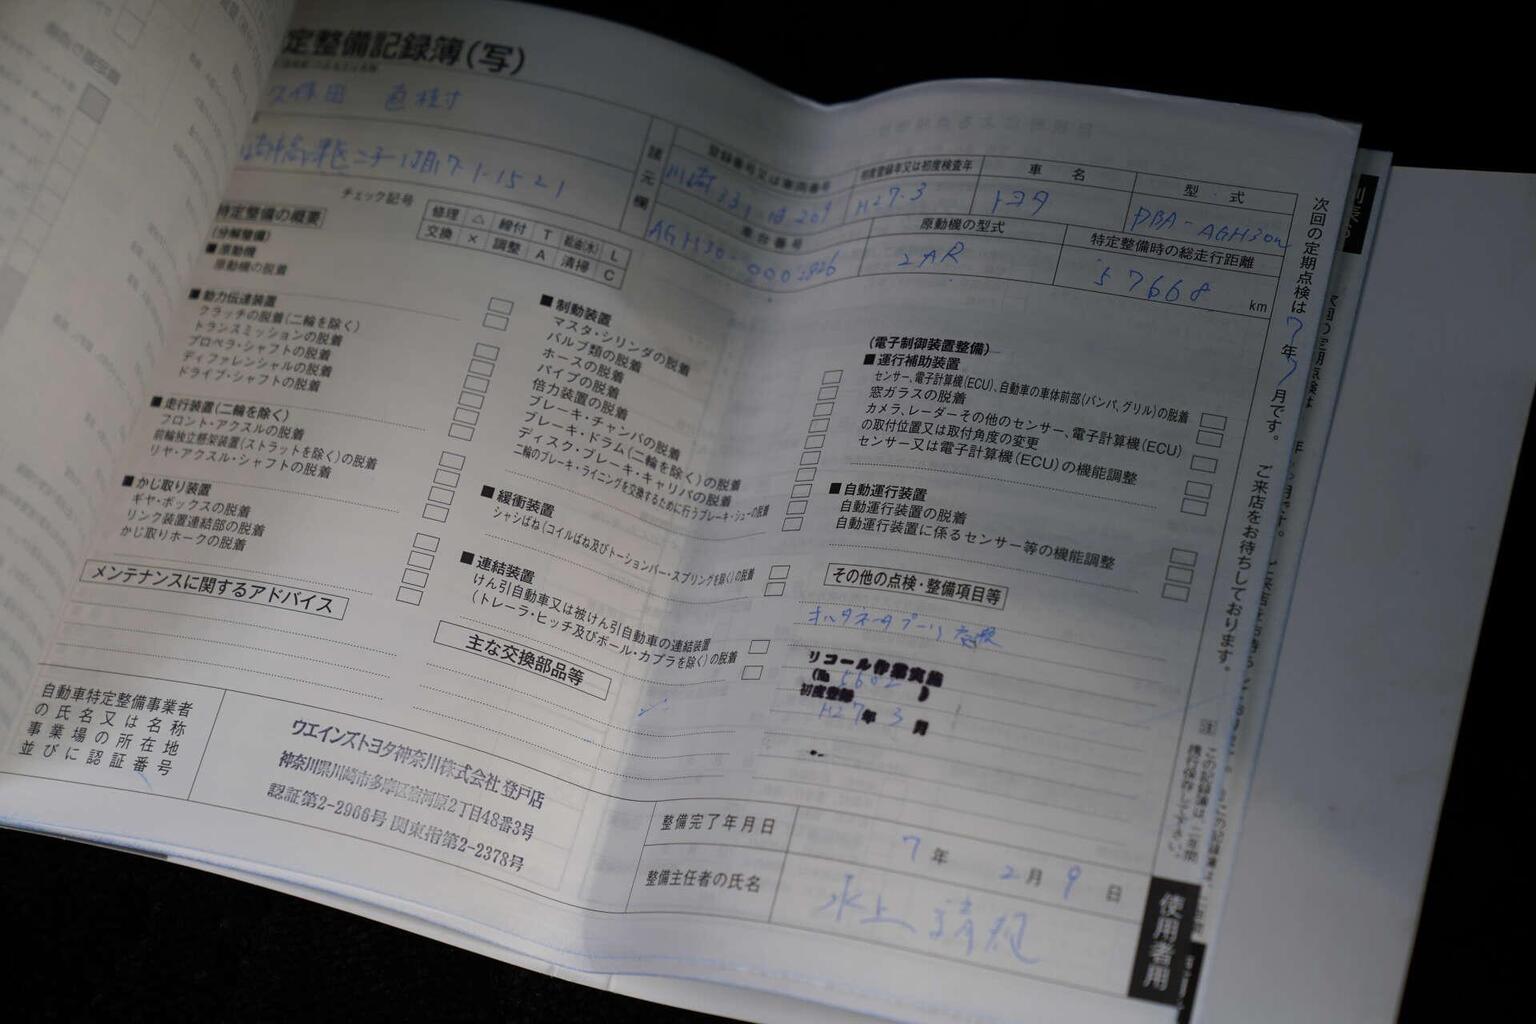 定整備記録簿(写)
久保田 直樹
諸元欄
登録番号又は車両番号
初度登録年又は初度検査年
車名
型式
川崎 331
H27.3
トヨタ
DBA-AGH30W
車台番号
原動機の型式
特定整備時の総走行距離
AGH30-
2AR
57668 km
チェック記号
修理 △ 締付 T 給油(水) L
交換 × 調整 A 清掃 C
特定整備の概要
(分解整備)
■原動機
原動機の脱着
■動力伝達装置
クラッチの脱着(二輪を除く)
トランスミッションの脱着
プロペラ・シャフトの脱着
ディファレンシャルの脱着
ドライブ・シャフトの脱着
■走行装置(二輪を除く)
フロント・アクスルの脱着
前輪独立懸架装置(ストラットを除く)の脱着
リヤ・アクスル・シャフトの脱着
■かじ取り装置
ギヤ・ボックスの脱着
リンク装置連結部の脱着
かじ取りホークの脱着
■制動装置
マスタ・シリンダの脱着
バルブ類の脱着
ホースの脱着
パイプの脱着
倍力装置の脱着
ブレーキ・チャンバの脱着
ブレーキ・ドラム(二輪を除く)の脱着
ディスク・ブレーキ・キャリパの脱着
二輪のブレーキ・ライニングを交換するために行うブレーキ・シューの脱着
■緩衝装置
シャシばね(コイルばね及びトーションバー・スプリングを除く)の脱着
■連結装置
けん引自動車又は被けん引自動車の連結装置
(トレーラ・ヒッチ及びボール・カプラを除く)の脱着
(電子制御装置整備)
■運行補助装置
センサー、電子計算機(ECU)、自動車の車体前部(バンパ、グリル)の脱着
窓ガラスの脱着
カメラ、レーダーその他のセンサー、電子計算機(ECU)
の取付位置又は取付角度の変更
センサー又は電子計算機(ECU)の機能調整
■自動運行装置
自動運行装置の脱着
自動運行装置に係るセンサー等の機能調整
メンテナンスに関するアドバイス
主な交換部品等
その他の点検・整備項目等
オルタネータプーリ 交換
リコール作業実施
(No. )
初度登録
H27年3月
自動車特定整備事業者
の氏名又は名称
事業場の所在地
並びに認証番号
ウエインズトヨタ神奈川株式会社 登戸店
神奈川県川崎市多摩区宿河原2丁目48番3号
認証第2-2966号 関東指第2-2378号
整備完了年月日
7年 2月 9日
整備主任者の氏名
水上
次回の定期点検は7年 月です。 ご来店をお待ちしております。
使用者用